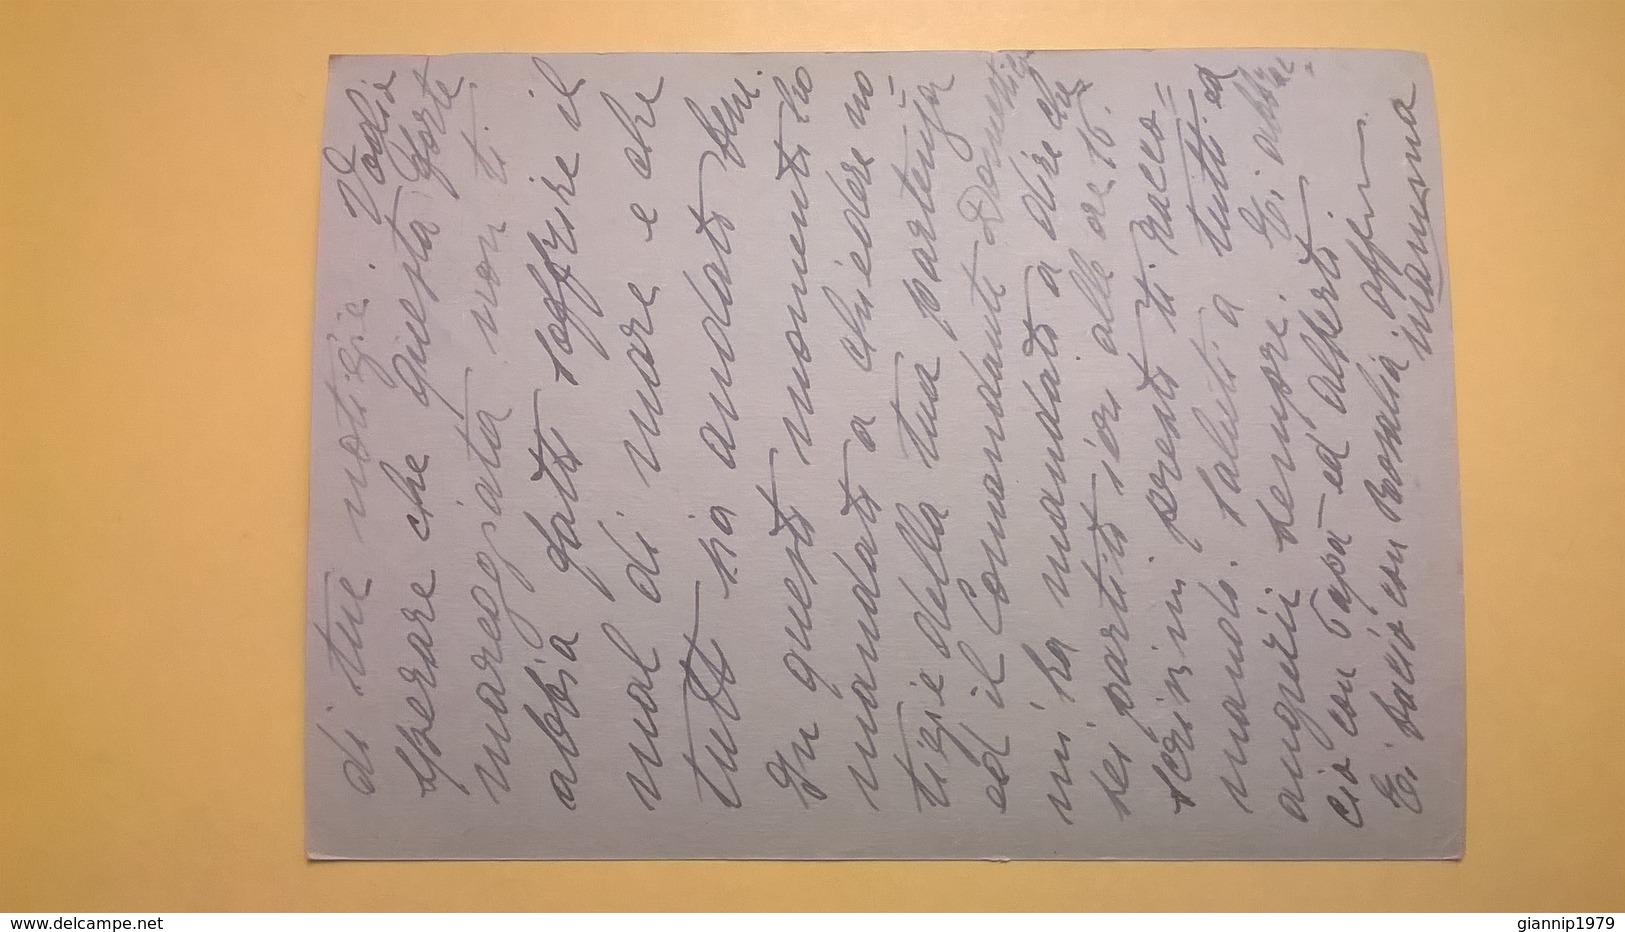 di tue notizie. Voglio
sperare che questa forte
mareggiata non ti
abbia fatto soffrire il
mal di mare e che
tutto sia andato bene.
In questo momento ho
mandato a chiedere no
tizie della tua partenza
ed il Comandante Domenico
mi ha mandato a dire che
sei partito ieri alle ore 16.
Scrivimi presto ti racco=
mando. Saluti a tutti ed
auguri sempre. Ti abbrac-
cio con Papà ed Alberto
Ti bacio con Rosalia aff.
mamma
www.delcampe.net
giannip1979